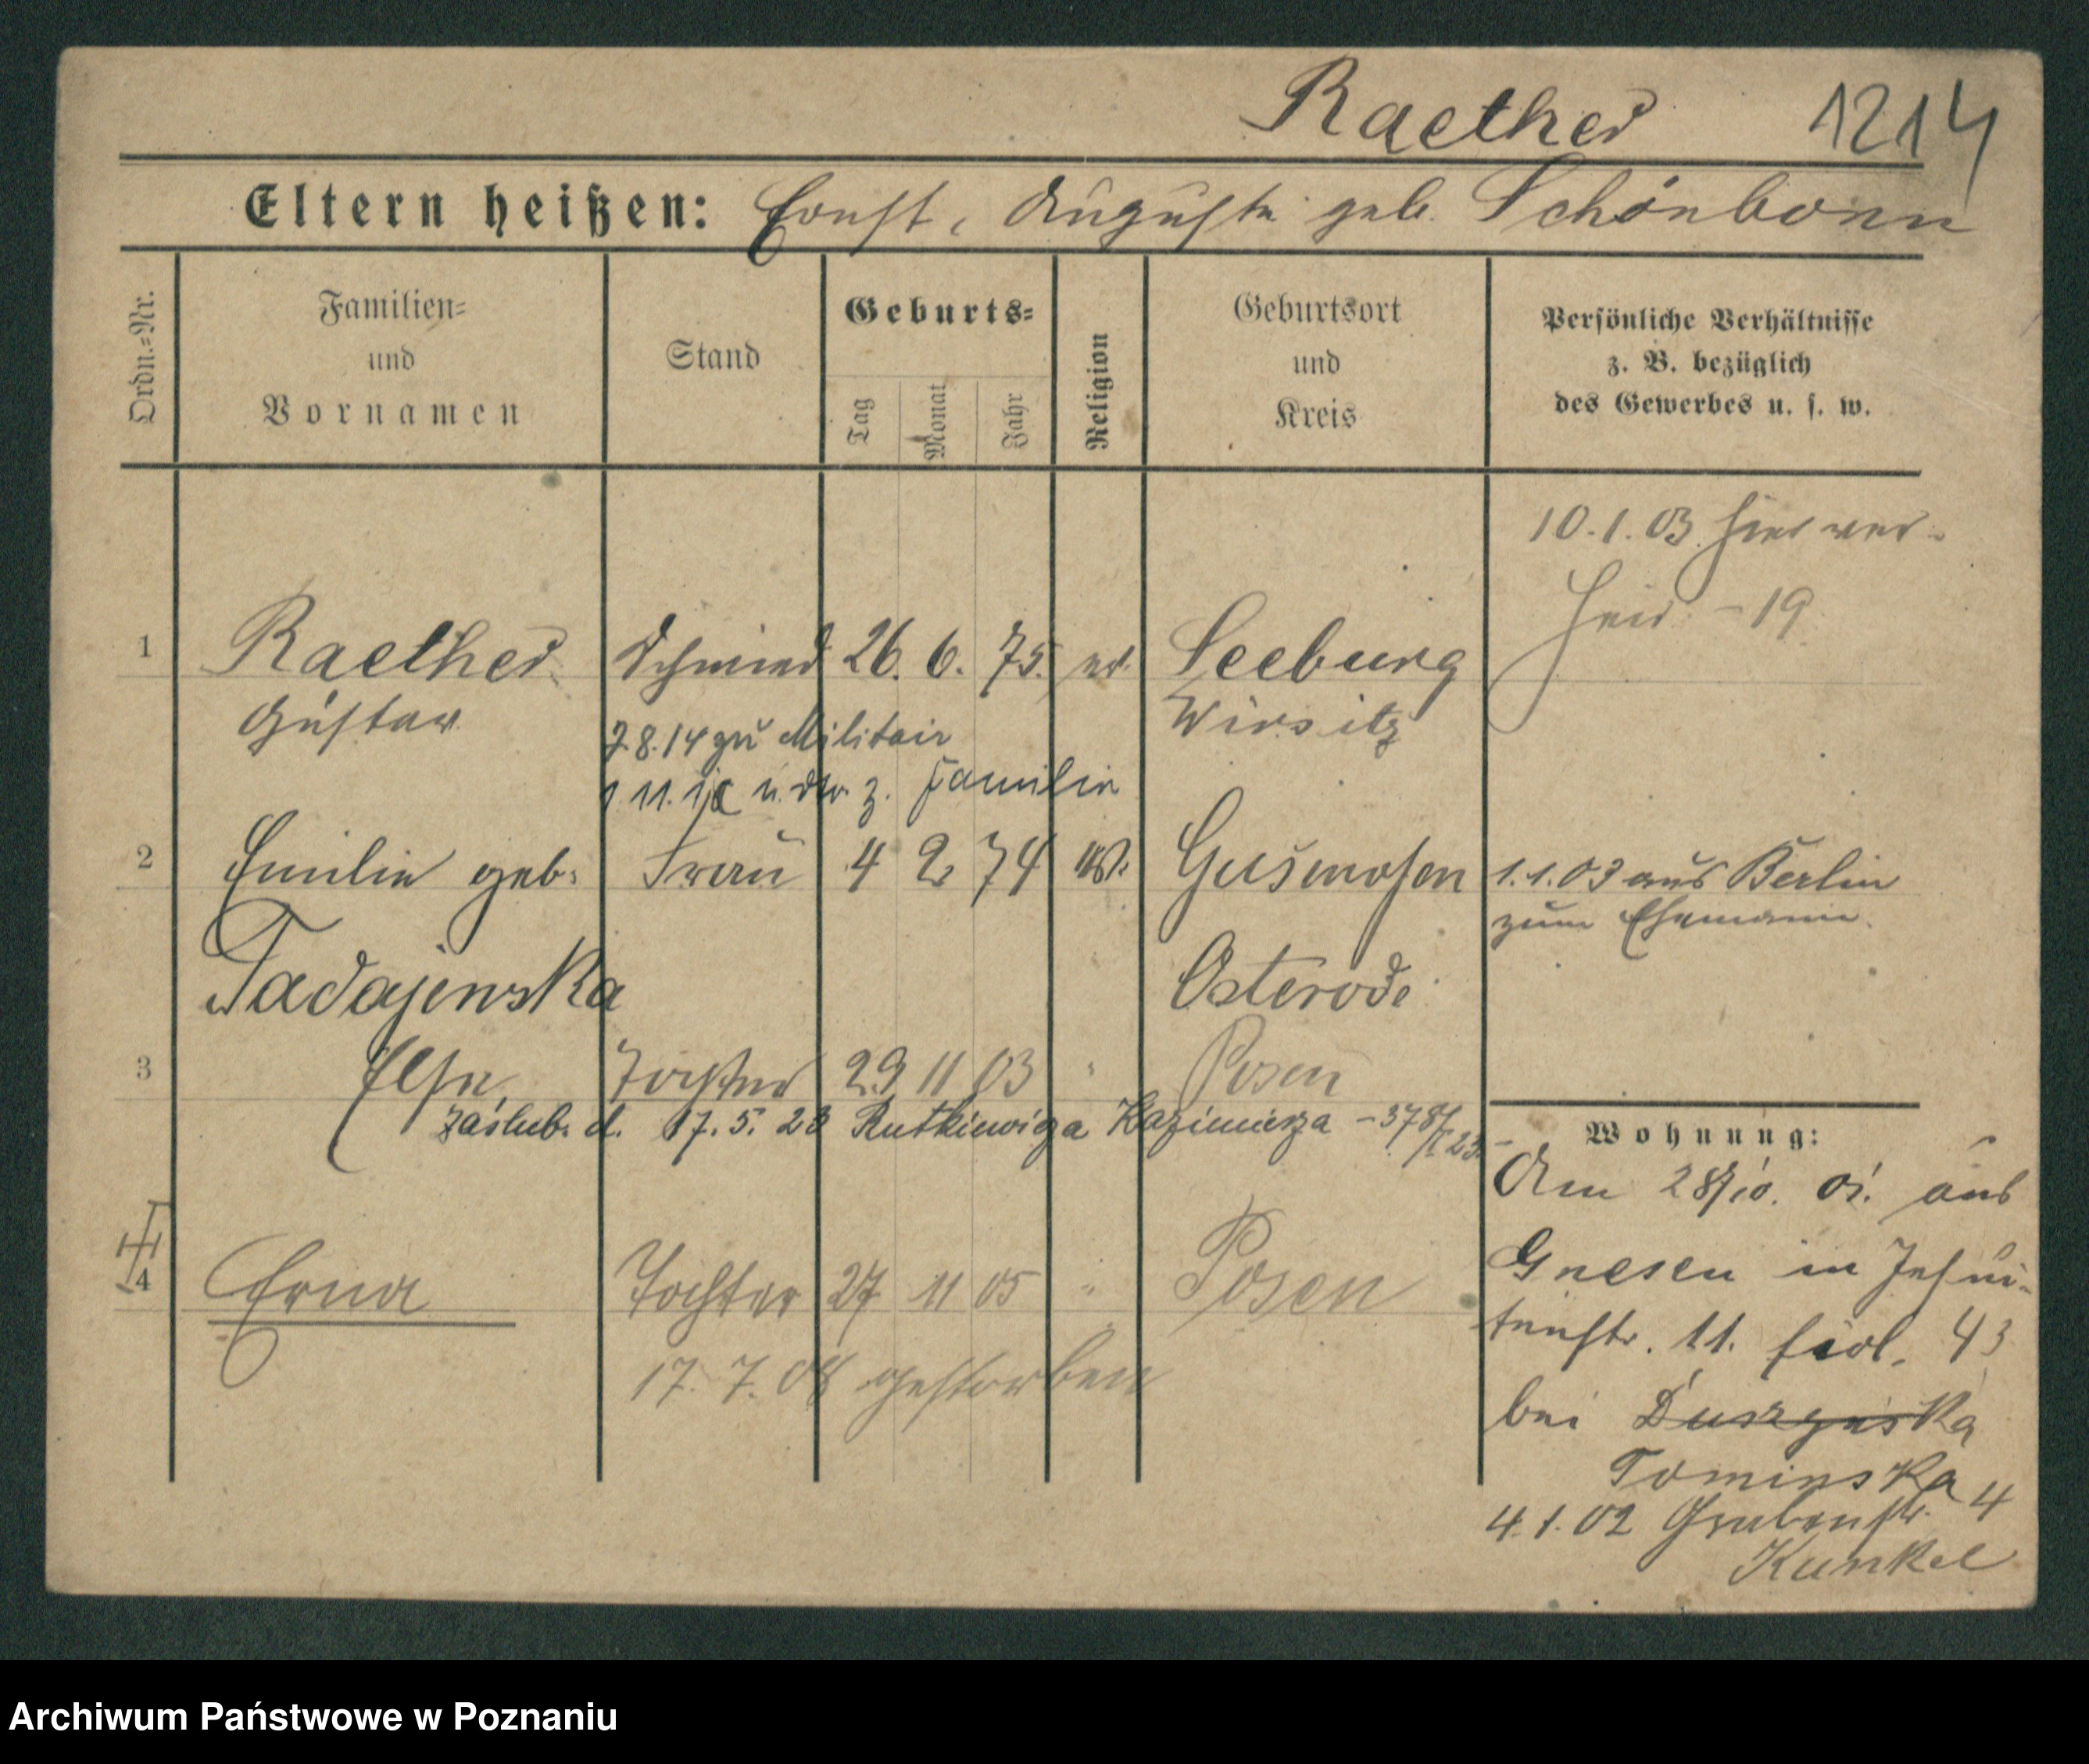 Raether 1214
Eltern heißen: Ernst, Auguste geb. Schönborn
Ordn.-Nr.
Familien-
und
Vornamen
Stand
Geburts-
Tag
Monat
Jahr
Religion
Geburtsort
und
Kreis
Persönliche Verhältnisse
z. B. bezüglich
des Gewerbes u. s. w.
10.1.03 hier ver-
heir. - 19
1 Raether Schmied 26. 6. 75. ev. Seeburg
Gustav Wirsitz
2.8.14 zu Militair
z. Familie
2 Emilie geb. Frau 4 2 74 Gusenofen 1.1.03 aus Berlin
zum Ehemann.
Tadajewska Osterode
3 Else Tochter 29 11 03 " Posen
zaślub. d. 17. 5. 23 Rutkiewicza Kazimierza - 378/
Wohnung:
4 Erna Tochter 27 11 05 " Posen
17. 7. 08 gestorben
Am 28/10. 01. aus
Gnesen in Jesui-
tenstr. 11.
bei
Tominska
4.1.02 Grabenstr. 4
Kunkel
Archiwum Państwowe w Poznaniu